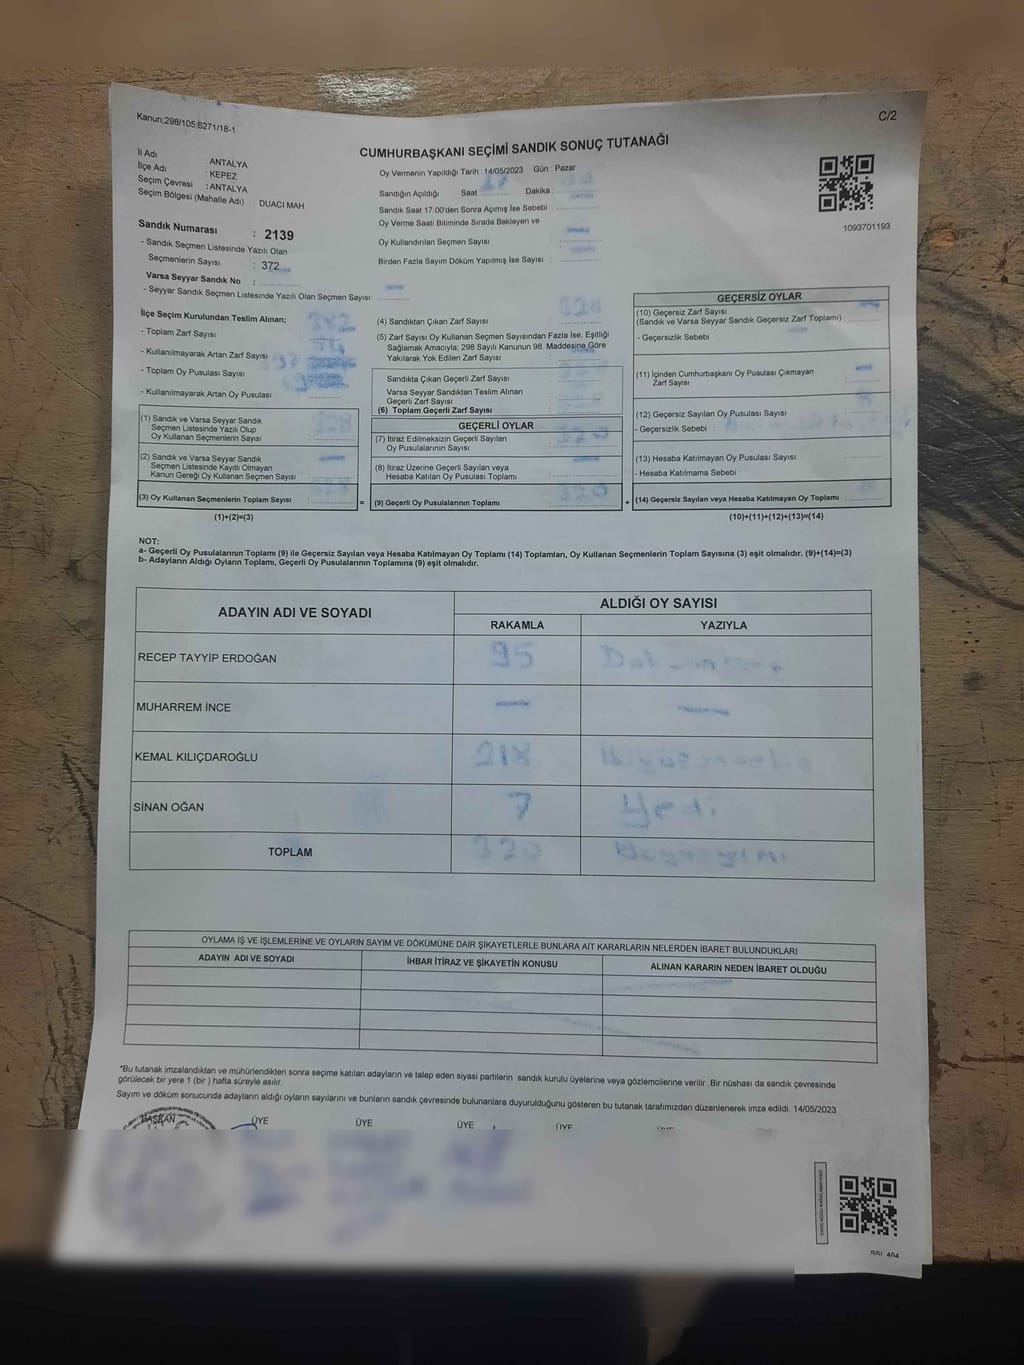 Kanun:298/105;6271/18-1
C/2
CUMHURBAŞKANI SEÇİMİ SANDIK SONUÇ TUTANAĞI
İl Adı : ANTALYA
İlçe Adı : KEPEZ
Seçim Çevresi : ANTALYA
Seçim Bölgesi (Mahalle Adı) : DUACI MAH.
Sandık Numarası : 2139
- Sandık Seçmen Listesinde Yazılı Olan
Seçmenlerin Sayısı : 372
Varsa Seyyar Sandık No :
- Seyyar Sandık Seçmen Listesinde Yazılı Olan Seçmen Sayısı:
Oy Vermenin Yapıldığı Tarih 14/05/2023 Gün : Pazar
Sandığın Açıldığı Saat 17 Dakika
Sandık Saat 17:00'den Sonra Açımış İse Sebebi
Oy Verme Saati Bitiminde Sırada Bekleyen ve
Oy Kullandırılan Seçmen Sayısı
Birden Fazla Sayım Döküm Yapılmış İse Sayısı
1093701193
İlçe Seçim Kurulundan Teslim Alınan;
- Toplam Zarf Sayısı 382
- Kullanılmayarak Artan Zarf Sayısı
- Toplam Oy Pusulası Sayısı
- Kullanılmayarak Artan Oy Pusulası
(1) Sandık ve Varsa Seyyar Sandık
Seçmen Listesinde Yazılı Olup
Oy Kullanan Seçmenlerin Sayısı 328
(2) Sandık ve Varsa Seyyar Sandık
Seçmen Listesinde Kayıtlı Olmayan
Kanun Gereği Oy Kullanan Seçmen Sayısı
(3) Oy Kullanan Seçmenlerin Toplam Sayısı 328
(1)+(2)=(3)
(4) Sandıktan Çıkan Zarf Sayısı 328
(5) Zarf Sayısı Oy Kullanan Seçmen Sayısından Fazla İse, Eşitliği
Sağlamak Amacıyla, 298 Sayılı Kanunun 98. Maddesine Göre
Yakılarak Yok Edilen Zarf Sayısı
Sandıkta Çıkan Geçerli Zarf Sayısı
Varsa Seyyar Sandıktan Teslim Alınan
Geçerli Zarf Sayısı
(6) Toplam Geçerli Zarf Sayısı
GEÇERLİ OYLAR
(7) İtiraz Edilmeksizin Geçerli Sayılan
Oy Pusulalarının Sayısı 320
(8) İtiraz Üzerine Geçerli Sayılan veya
Hesaba Katılan Oy Pusulası Toplamı
= (9) Geçerli Oy Pusulalarının Toplamı 320
GEÇERSİZ OYLAR
(10) Geçersiz Zarf Sayısı
(Sandık ve Varsa Seyyar Sandık Geçersiz Zarf Toplamı)
- Geçersizlik Sebebi :
(11) İçinden Cumhurbaşkanı Oy Pusulası Çıkmayan
Zarf Sayısı
(12) Geçersiz Sayılan Oy Pusulası Sayısı 8
- Geçersizlik Sebebi :
(13) Hesaba Katılmayan Oy Pusulası Sayısı
- Hesaba Katılmama Sebebi :
+ (14) Geçersiz Sayılan veya Hesaba Katılmayan Oy Toplamı 8
(10)+(11)+(12)+(13)=(14)
NOT:
a- Geçerli Oy Pusulalarının Toplamı (9) ile Geçersiz Sayılan veya Hesaba Katılmayan Oy Toplamı (14) Toplamları, Oy Kullanan Seçmenlerin Toplam Sayısına (3) eşit olmalıdır. (9)+(14)=(3)
b- Adayların Aldığı Oyların Toplamı, Geçerli Oy Pusulalarının Toplamına (9) eşit olmalıdır.
ADAYIN ADI VE SOYADI
ALDIĞI OY SAYISI
RAKAMLA YAZIYLA
RECEP TAYYİP ERDOĞAN 95
MUHARREM İNCE — —
KEMAL KILIÇDAROĞLU 218
SİNAN OĞAN 7 Yedi
TOPLAM 320
OYLAMA İŞ VE İŞLEMLERİNE VE OYLARIN SAYIM VE DÖKÜMÜNE DAİR ŞİKAYETLERLE BUNLARA AİT KARARLARIN NELERDEN İBARET BULUNDUKLARI
ADAYIN ADI VE SOYADI İHBAR İTİRAZ VE ŞİKAYETİN KONUSU ALINAN KARARIN NEDEN İBARET OLDUĞU
*Bu tutanak imzalandıktan ve mühürlendikten sonra seçime katılan adayların ve talep eden siyasi partilerin sandık kurulu üyelerine veya gözlemcilerine verilir. Bir nüshası da sandık çevresinde
görülecek bir yere 1 (bir ) hafta süreyle asılır.
Sayım ve döküm sonucunda adayların aldığı oyların sayılarını ve bunların sandık çevresinde bulunanlara duyurulduğunu gösteren bu tutanak tarafımızdan düzenlenerek imza edildi. 14/05/2023
BAŞKAN ÜYE ÜYE ÜYE ÜYE